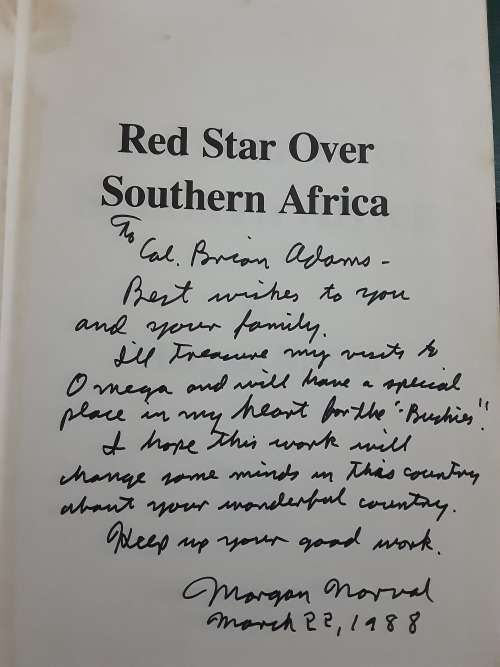 Red Star Over
Southern Africa
To
Col. Brian Adams -
Best wishes to you
and your family.
I'll treasure my visits to
Omega and will have a special
place in my heart for the "Bushies".
I hope this work will
change some minds in this country
about your wonderful country.
Keep up your good work.
Morgan Norval
March 22, 1988